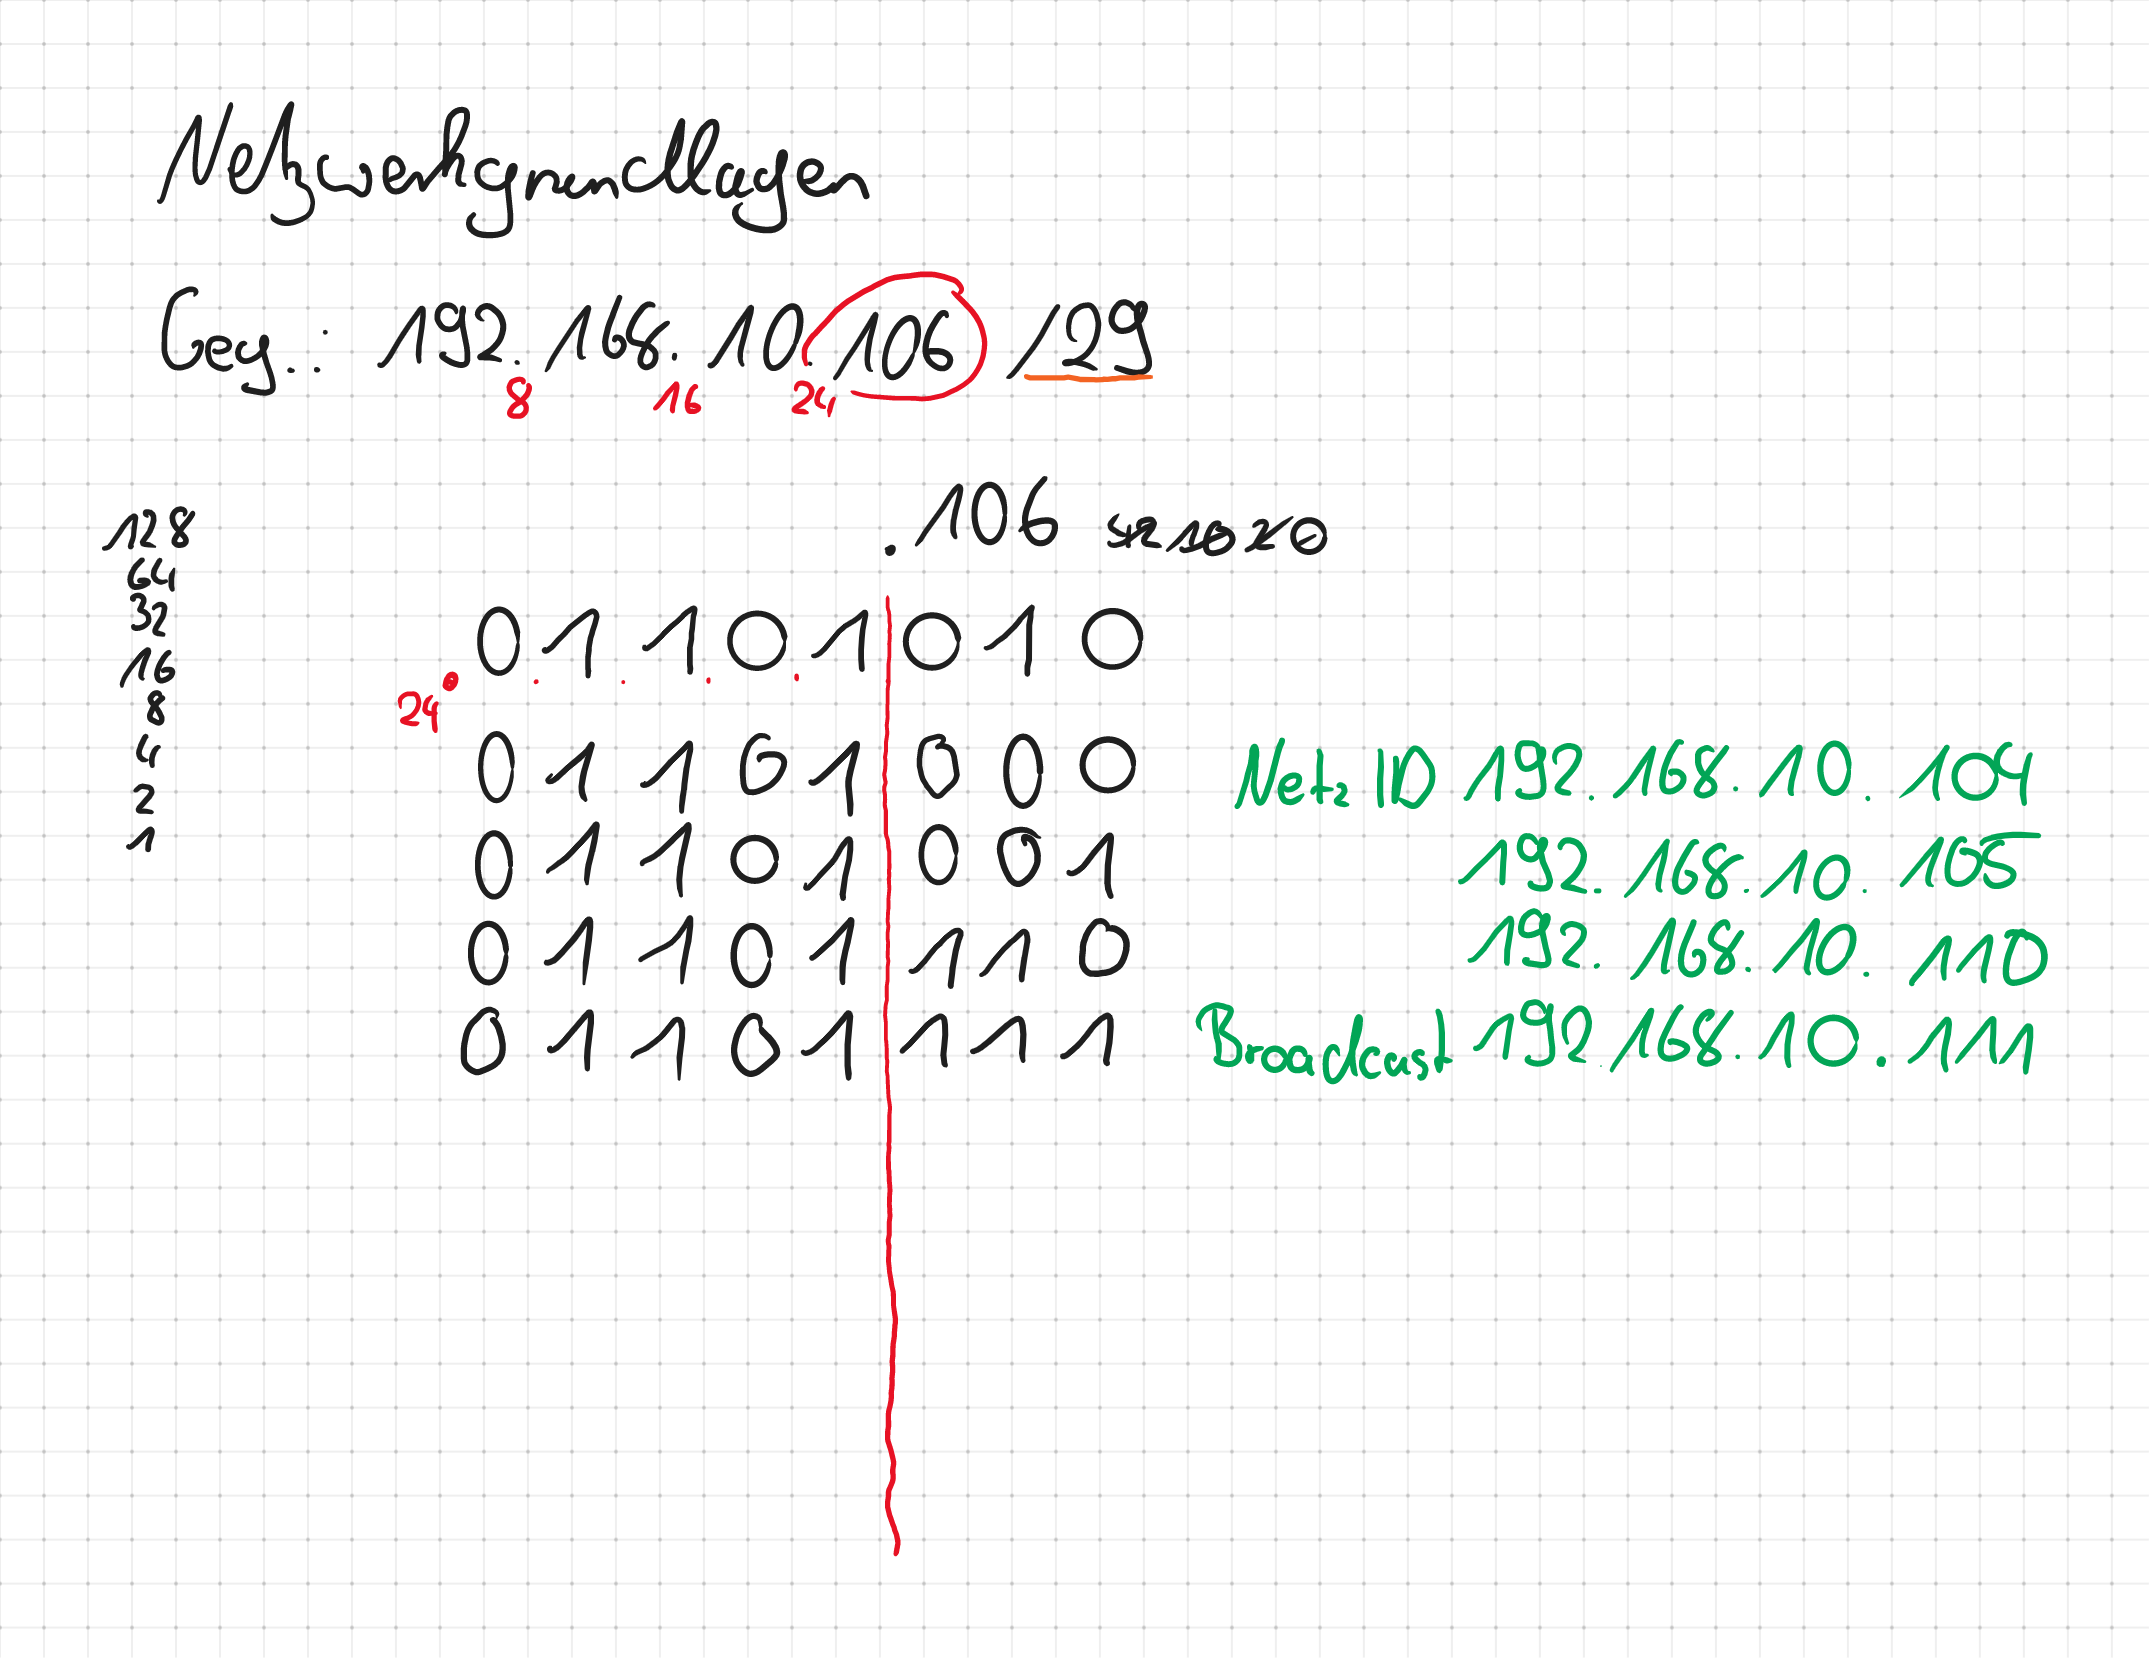 Netzwerkgrundlagen
Geg.: 192.168.10.106 /29
8 16 24
.106 42 10 20
128
64
32
16
8
4
2
1
0 1 1 0 1 0 1 0
24
0 1 1 0 1 0 0 0 Netz ID 192.168.10.104
0 1 1 0 1 0 0 1 192.168.10.105
0 1 1 0 1 1 1 0 192.168.10.110
0 1 1 0 1 1 1 1 Broadcast 192.168.10.111